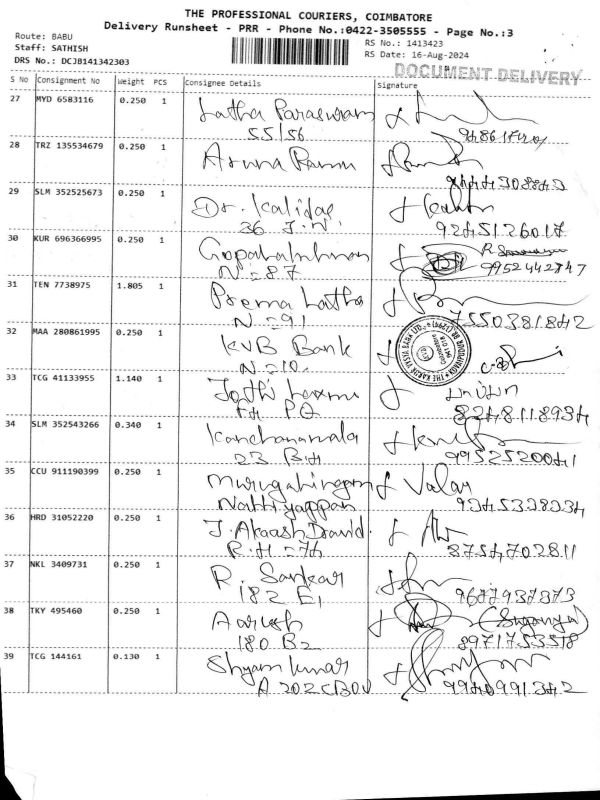 THE PROFESSIONAL COURIERS, COIMBATORE
Delivery Runsheet - PRR - Phone No.:0422-3505555 - Page No.:3
Route: BABU
Staff: SATHISH
DRS No.: DCJB141342303
RS No.: 1413423
RS Date: 16-Aug-2024
DOCUMENT DELIVERY
S No Consignment No Weight PCS Consignee Details Signature
27 MYD 6583116 0.250 1 Latha Parasuram
55/56
28 TRZ 135534679 0.250 1 Aruna Ramu
29 SLM 352525673 0.250 1 Dr. Kalidas
36 J.N.
9245126017
30 KUR 696366995 0.250 1 Gopalakrishnan
N-87 9952442847
31 TEN 7738975 1.805 1 Prema Latha
N-91 7550381842
32 MAA 280861995 0.250 1 KVB Bank
N-10.
33 TCG 41133955 1.140 1 Jothi Laxmi
8248118934
34 SLM 352543266 0.340 1 Kanchanamala
23 B4 9952520041
35 CCU 911190399 0.250 1 Murugalingam Valar
Nattiyappan 9345332234
36 HRD 31052220 0.250 1 J. Akaash David
8754702811
37 NKL 3409731 0.250 1 R. Sankar
182 E1 9677937373
38 TKY 495460 0.250 1
180 B2 8971753518
39 TCG 144161 0.130 1 Shyam kumar
A 202 CBOU 9940991342